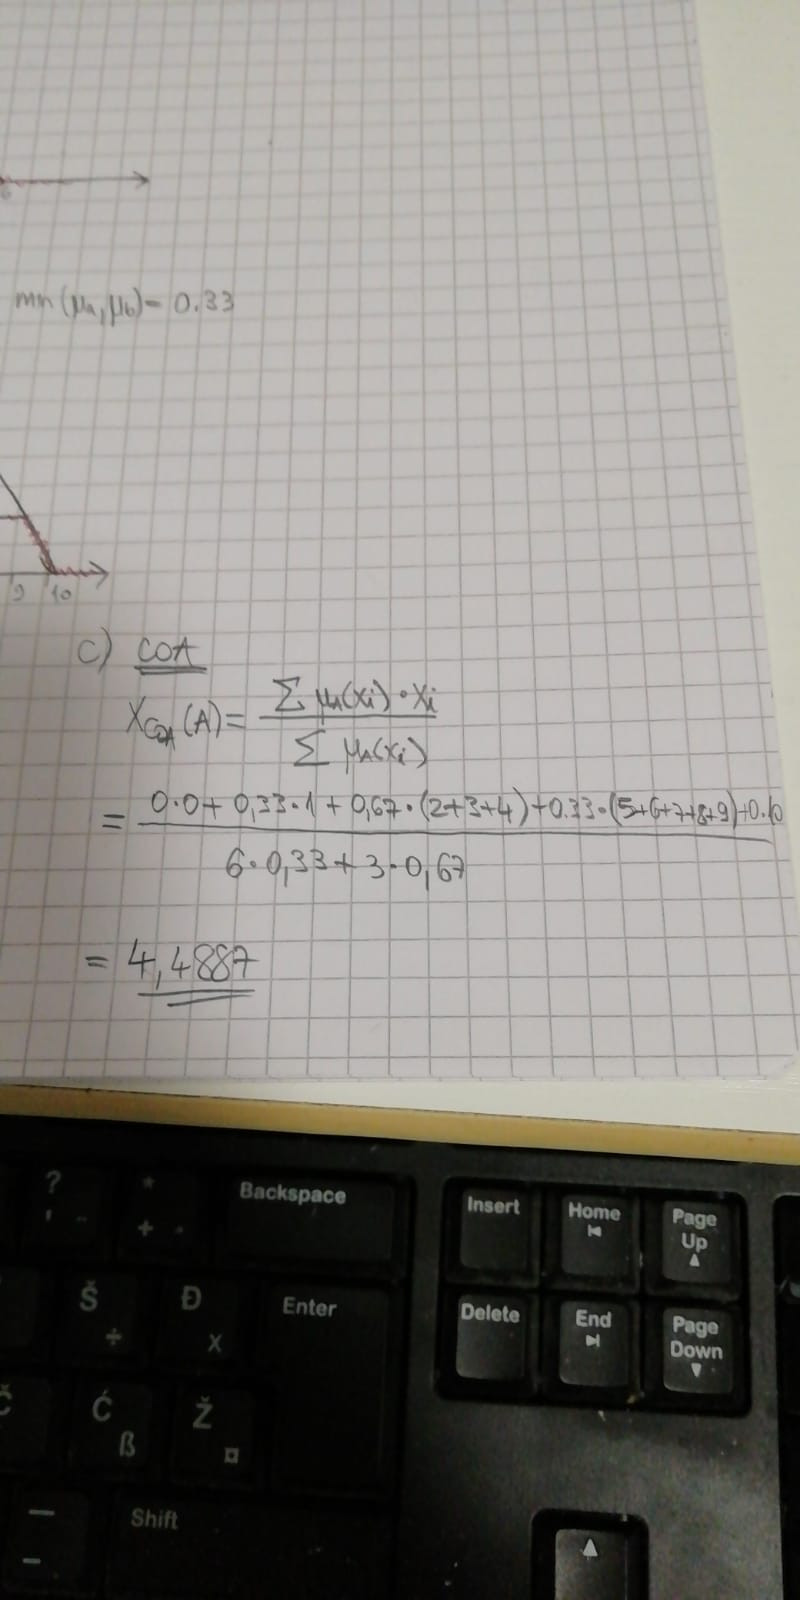 min(μa,μb)= 0.33
9 10
c) COA
XCOA(A)= Σ μA(xi)·xi
Σ μA(xi)
= 0·0+ 0,33·1+0,67·(2+3+4)+0.33·(5+6+7+8+9)+0.10
6·0,33+3·0,67
= 4,4887
? * Backspace Insert Home Page Up
' ¨ +
Š Đ Enter Delete End Page Down
÷ x
Č Ć Ž
ß ¤
Shift